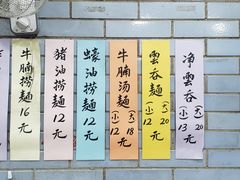 牛腩捞麵16元
豬油捞麵12元
蠔油捞麵12元
牛腩汤麵
(小)12 (大)18
元
雲吞麵
(小)12 (大)20
元
净雲吞
(小)13 (大)20
元